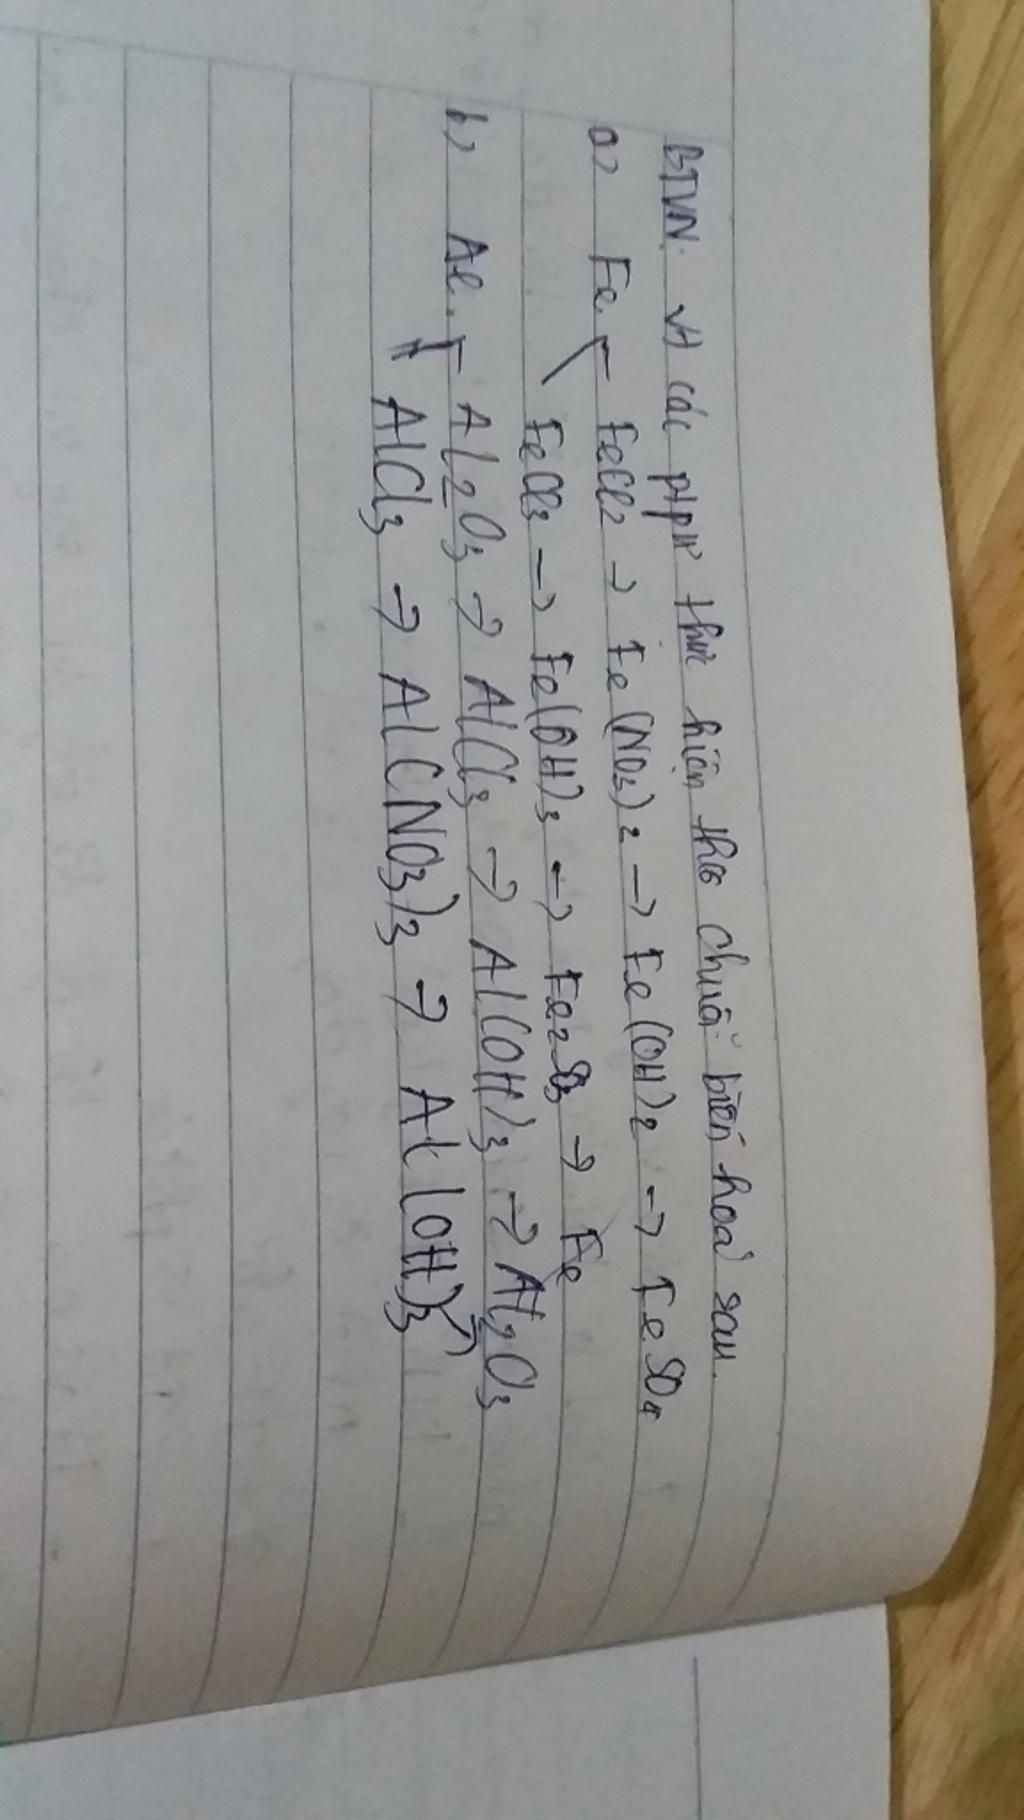 BTVN. Vt các ptpứ thực hiện theo chuỗi biến hoá sau.
a) Fe FeCl2 → Fe(NO3)2 → Fe(OH)2 → FeSO4
FeCl3 → Fe(OH)3 → Fe2O3 → Fe
b) Al Al2O3 → AlCl3 → Al(OH)3 → Al2O3
AlCl3 → Al(NO3)3 → Al(OH)3 →